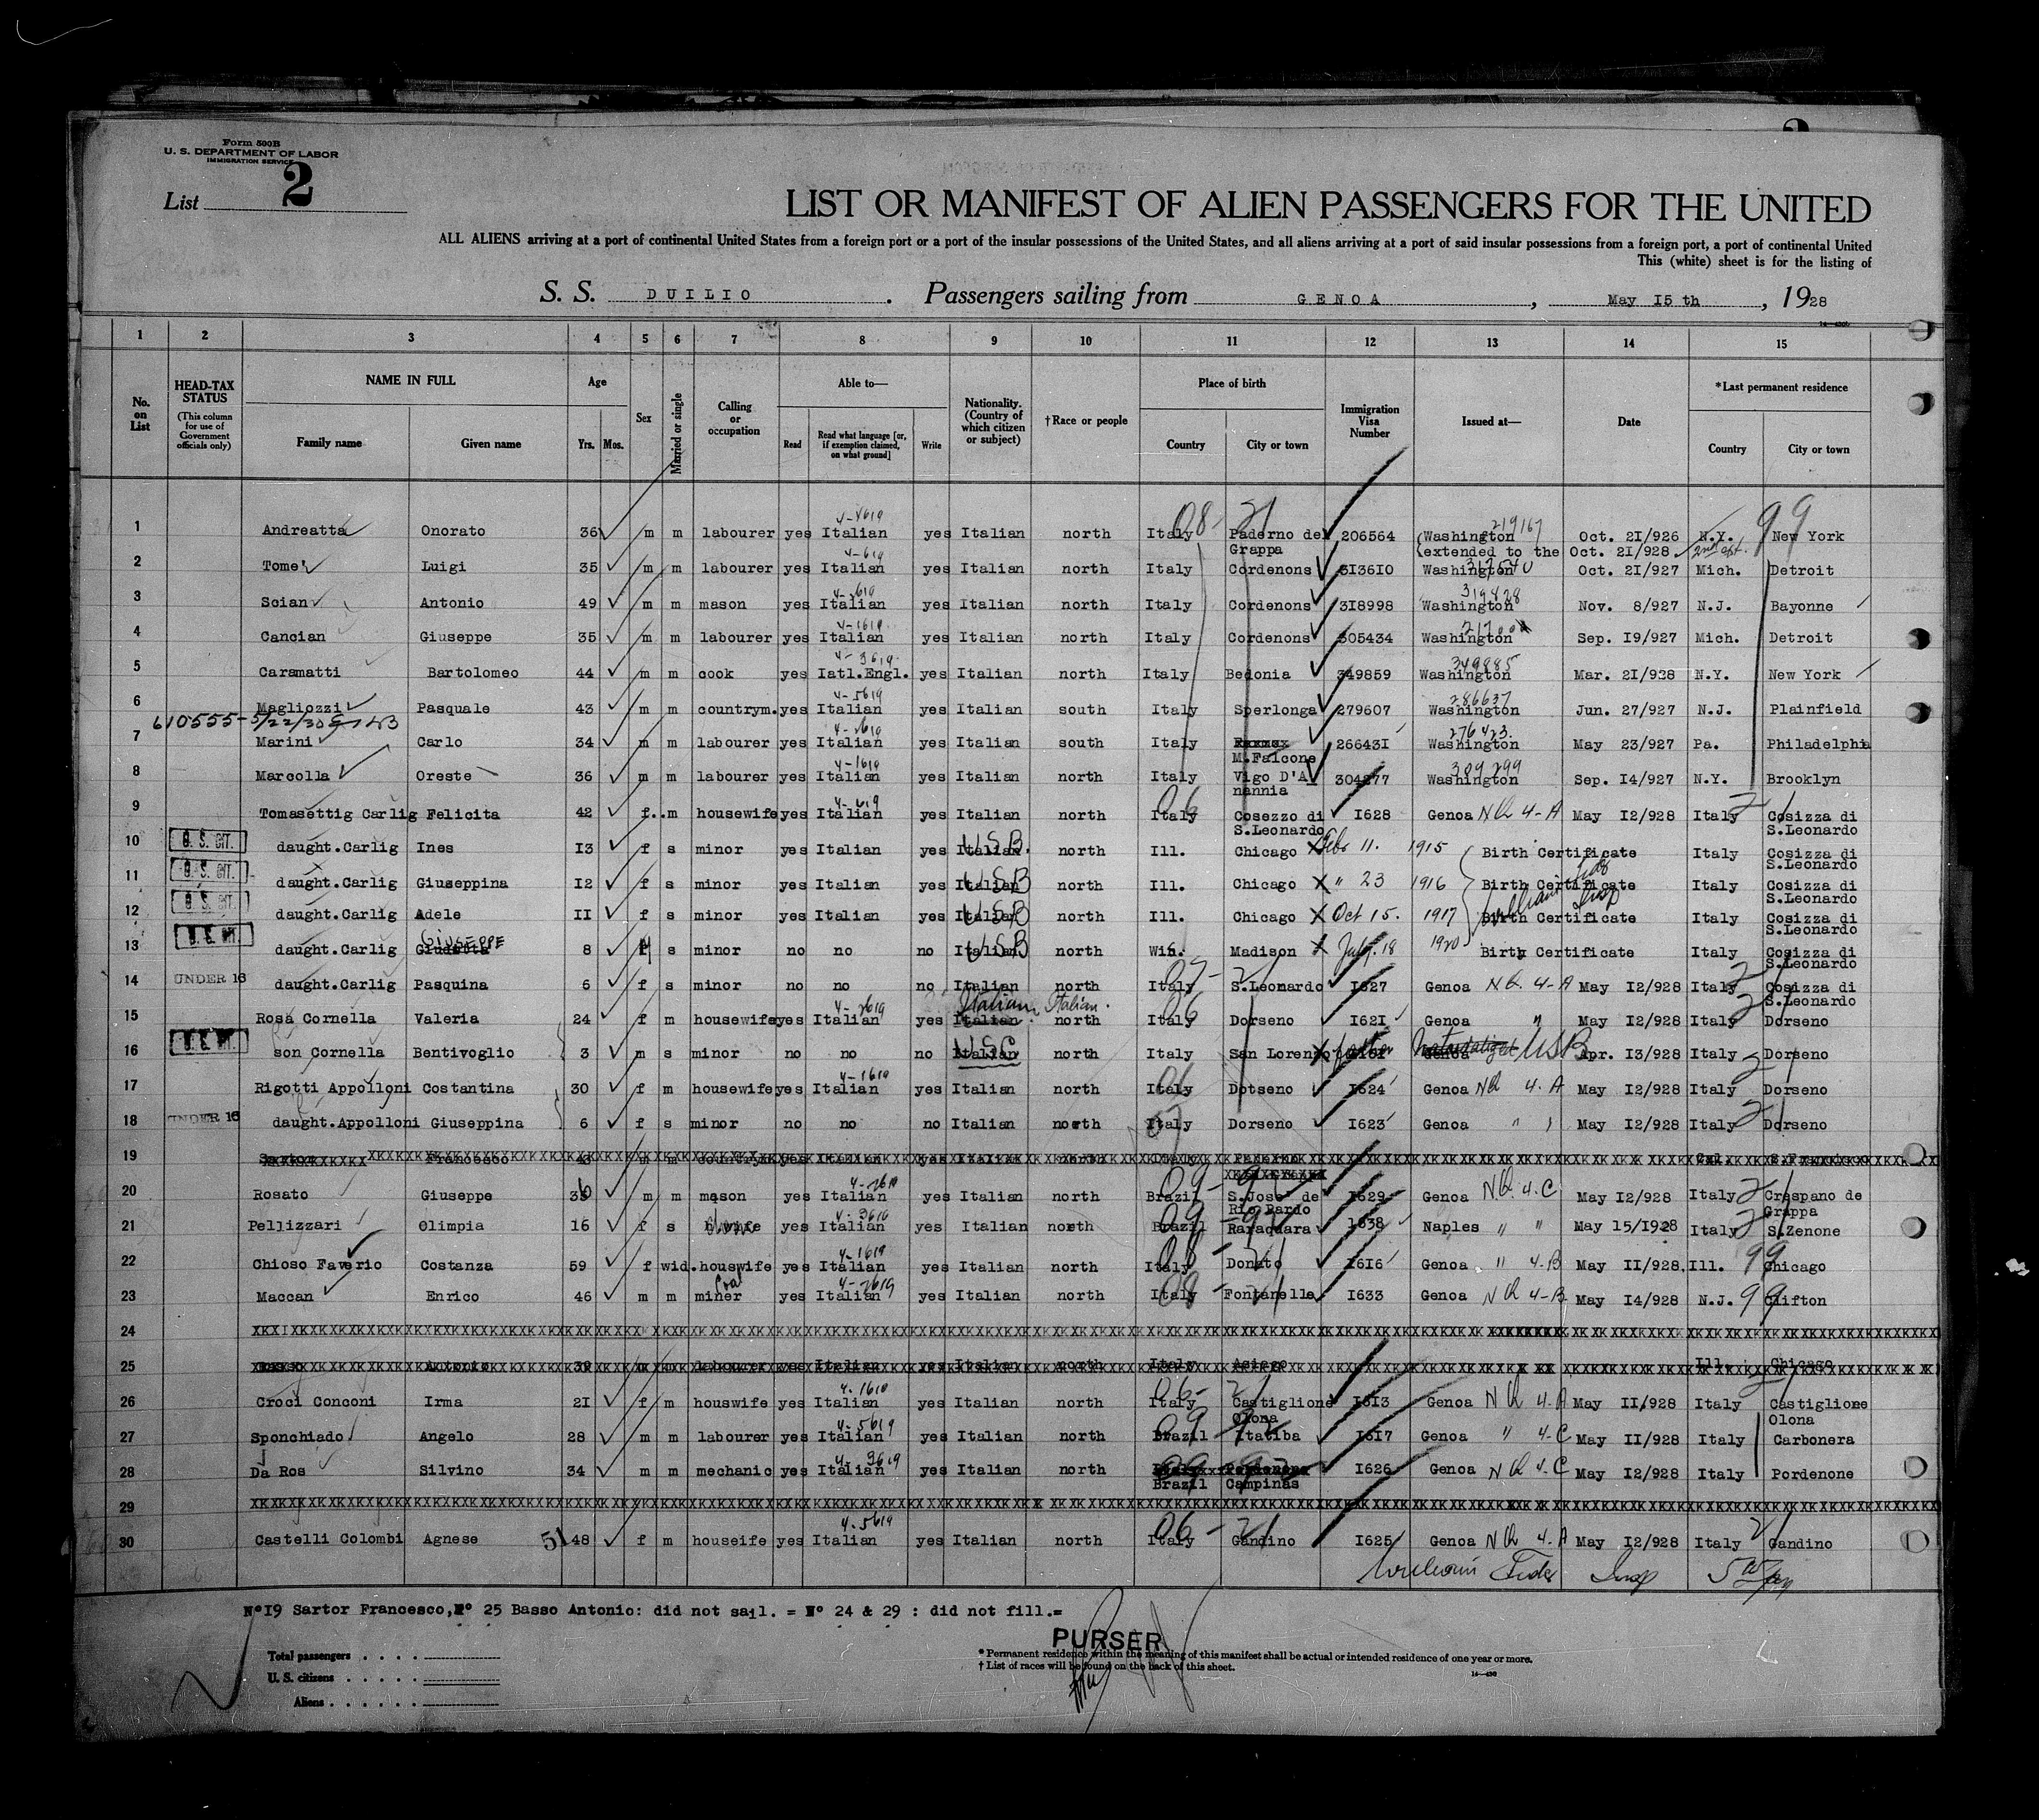 Form 500B
U. S. DEPARTMENT OF LABOR
IMMIGRATION SERVICE
List 2
LIST OR MANIFEST OF ALIEN PASSENGERS FOR THE UNITED
ALL ALIENS arriving at a port of continental United States from a foreign port or a port of the insular possessions of the United States, and all aliens arriving at a port of said insular possessions from a foreign port, a port of continental United
This (white) sheet is for the listing of
S. S. DUILIO. Passengers sailing from GENOA, May I5 th, 1928
1 2 3 4 5 6 7 8 9 10 11 12 13 14 15
No. on List
HEAD-TAX STATUS (This column for use of Government officials only)
NAME IN FULL Family name Given name
Age Yrs. Mos.
Sex
Married or single
Calling or occupation
Able to— Read Read what language [or, if exemption claimed, on what ground] Write
Nationality. (Country of which citizen or subject)
†Race or people
Place of birth Country City or town
Immigration Visa Number
Issued at—
Date
*Last permanent residence Country City or town
1 Andreatta Onorato 36 m m labourer yes Italian yes Italian north Italy Paderno del Grappa 206564 Washington 219167 Oct. 2I/926 N.Y. New York
extended to the Oct. 2I/928
2 Tome' Luigi 35 m m labourer yes Italian yes Italian north Italy Cordenons 3I36I0 Washington Oct. 2I/927 Mich. Detroit
3 Scian Antonio 49 m m mason yes Italian yes Italian north Italy Cordenons 3I8998 Washington 319828 Nov. 8/927 N.J. Bayonne
4 Cancian Giuseppe 35 m m labourer yes Italian yes Italian north Italy Cordenons 305434 Washington Sep. I9/927 Mich. Detroit
5 Caramatti Bartolomeo 44 m m cook yes Iatl.Engl. yes Italian north Italy Bedonia 349859 Washington 349885 Mar. 2I/928 N.Y. New York
6 Magliozzi Pasquale 43 m m countrym. yes Italian yes Italian south Italy Sperlonga 279607 Washington 286637 Jun. 27/927 N.J. Plainfield
610555-5/22/30
7 Marini Carlo 34 m m labourer yes Italian yes Italian south Italy M.Falcone 26643I Washington 276423 May 23/927 Pa. Philadelphia
8 Marcolla Oreste 36 m m labourer yes Italian yes Italian north Italy Vigo D'A nannia 304277 Washington 309299 Sep. I4/927 N.Y. Brooklyn
9 Tomasettig Carlig Felicita 42 f m housewife yes Italian yes Italian north Italy Cosezzo di S.Leonardo I628 Genoa NQ 4-A May I2/928 Italy Cosizza di S.Leonardo
10 U. S. CIT. daught.Carlig Ines I3 f s minor yes Italian yes Italian U.S.B. north Ill. Chicago Feb 11. 1915 Birth Certificate Italy Cosizza di S.Leonardo
11 U. S. CIT. daught.Carlig Giuseppina I2 f s minor yes Italian yes Italian USB north Ill. Chicago " 23 1916 Birth Certificate Italy Cosizza di S.Leonardo
12 U. S. CIT. daught.Carlig Adele II f s minor yes Italian yes Italian USB north Ill. Chicago Oct 15. 1917 Birth Certificate Italy Cosizza di S.Leonardo
13 U. S. CIT. daught.Carlig GIUSEPPE 8 f s minor no no no Italian USB north Wis. Madison July 18 1920 Birth Certificate Italy Cosizza di S.Leonardo
14 UNDER 16 daught.Carlig Pasquina 6 f s minor no no no Italian north Italy S.Leonardo I627 Genoa NQ. 4-A May I2/928 Italy Cosizza di S.Leonardo
15 Rosa Cornella Valeria 24 f m housewife yes Italian yes Italian Italian Italian. north Italy Dorseno I62I Genoa " May I2/928 Italy Dorseno
16 U. S. CIT. son Cornella Bentivoglio 3 m s minor no no no Italian USC north Italy San Lorenzo father Genoa naturalized USB Apr. I3/928 Italy Dorseno
17 Rigotti Appolloni Costantina 30 f m housewife yes Italian yes Italian north Italy Dotseno I624 Genoa NQ 4-A May I2/928 Italy Dorseno
18 UNDER 16 daught.Appolloni Giuseppina 6 f s minor no no no Italian north Italy Dorseno I623 Genoa " " May I2/928 Italy Dorseno
19 Sartor Francesco 43 m m countrym yes Italian yes Italian north Italy Cal. S.Francisco
20 Rosato Giuseppe 36 m m mason yes Italian yes Italian north Brazil S.Jose de Rio Pardo I629 Genoa NQ. 4-C May I2/928 Italy Crespano de Grappa
21 Pellizzari Olimpia 16 f s h.wife yes Italian yes Italian north Brazil Raraquara 1638 Naples " " May 15/1928 Italy S.Zenone
22 Chioso Faverio Costanza 59 f wid. houswife yes Italian yes Italian north Italy Donato I6I6 Genoa " 4-B May II/928 Ill. Chicago
23 Maccan Enrico 46 m m Coal miner yes Italian yes Italian north Italy Fontanelle I633 Genoa NQ 4-B May I4/928 N.J. Clifton
24
25 Basso Antonio 39 m m labourer yes Italian yes Italian north Italy Asiago Ill. Chicago
26 Croci Conconi Irma 2I f m houswife yes Italian yes Italian north Italy Castiglione Olona I6I3 Genoa NQ 4-A May II/928 Italy Castiglione Olona
27 Sponchiado Angelo 28 m m labourer yes Italian yes Italian north Brazil Itatiba I6I7 Genoa " 4-C May II/928 Italy Carbonera
28 Da Ros Silvino 34 m m mechanic yes Italian yes Italian north Brazil Campinas I626 Genoa NQ 4-C May I2/928 Italy Pordenone
29
30 Castelli Colombi Agnese 51 48 f m houseife yes Italian yes Italian north Italy Gandino I625 Genoa NQ 4-A May I2/928 Italy Gandino
N°I9 Sartor Francesco,N° 25 Basso Antonio: did not sail. = N° 24 & 29 : did not fill.=
PURSER
Total passengers
U. S. citizens
Aliens
* Permanent residence within the meaning of this manifest shall be actual or intended residence of one year or more.
† List of races will be found on the back of this sheet.